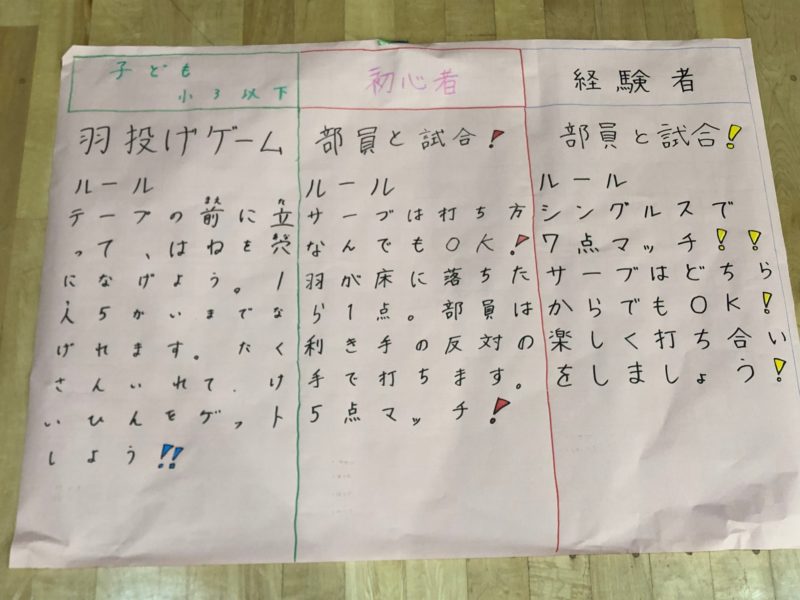 子ども
小3以下
羽投げゲーム
ルール
テープの前に立
って、はねを穴
になげよう。1
人5かいまでな
げれます。たく
さんいれて、け
いひんをゲット
しよう!!
初心者
部員と試合!
ルール
サーブは打ち方
なんでもOK!
羽が床に落ちた
ら1点。部員は
利き手の反対の
手で打ちます。
5点マッチ!
経験者
部員と試合!
ルール
シングルスで
7点マッチ!!
サーブはどちら
からでもOK!
楽しく打ち合い
をしましょう!